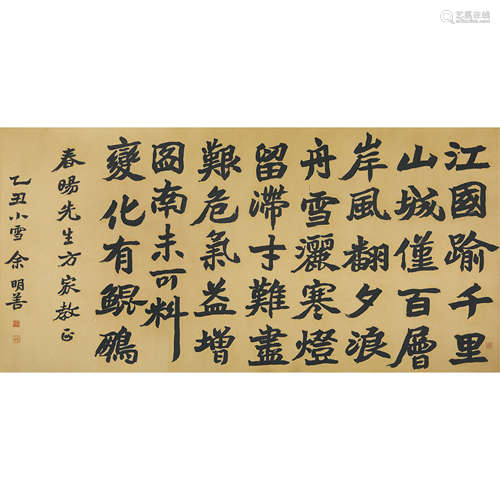 江國踰千里
山城僅百層
岸風翻夕浪
舟雪灑寒燈
留滯才難盡
艱危氣益增
圖南未可料
變化有鯤鵬
春暘先生方家教正
乙丑小雪余明善